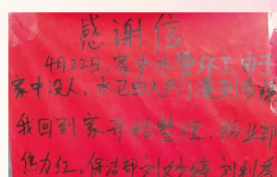 感谢信
4月22日，家中水管坏了，由于
家中没人，水已由入户门漫到步梯
我回到家开始整理，物业部
焦力红，保洁部刘妙婷 刘利